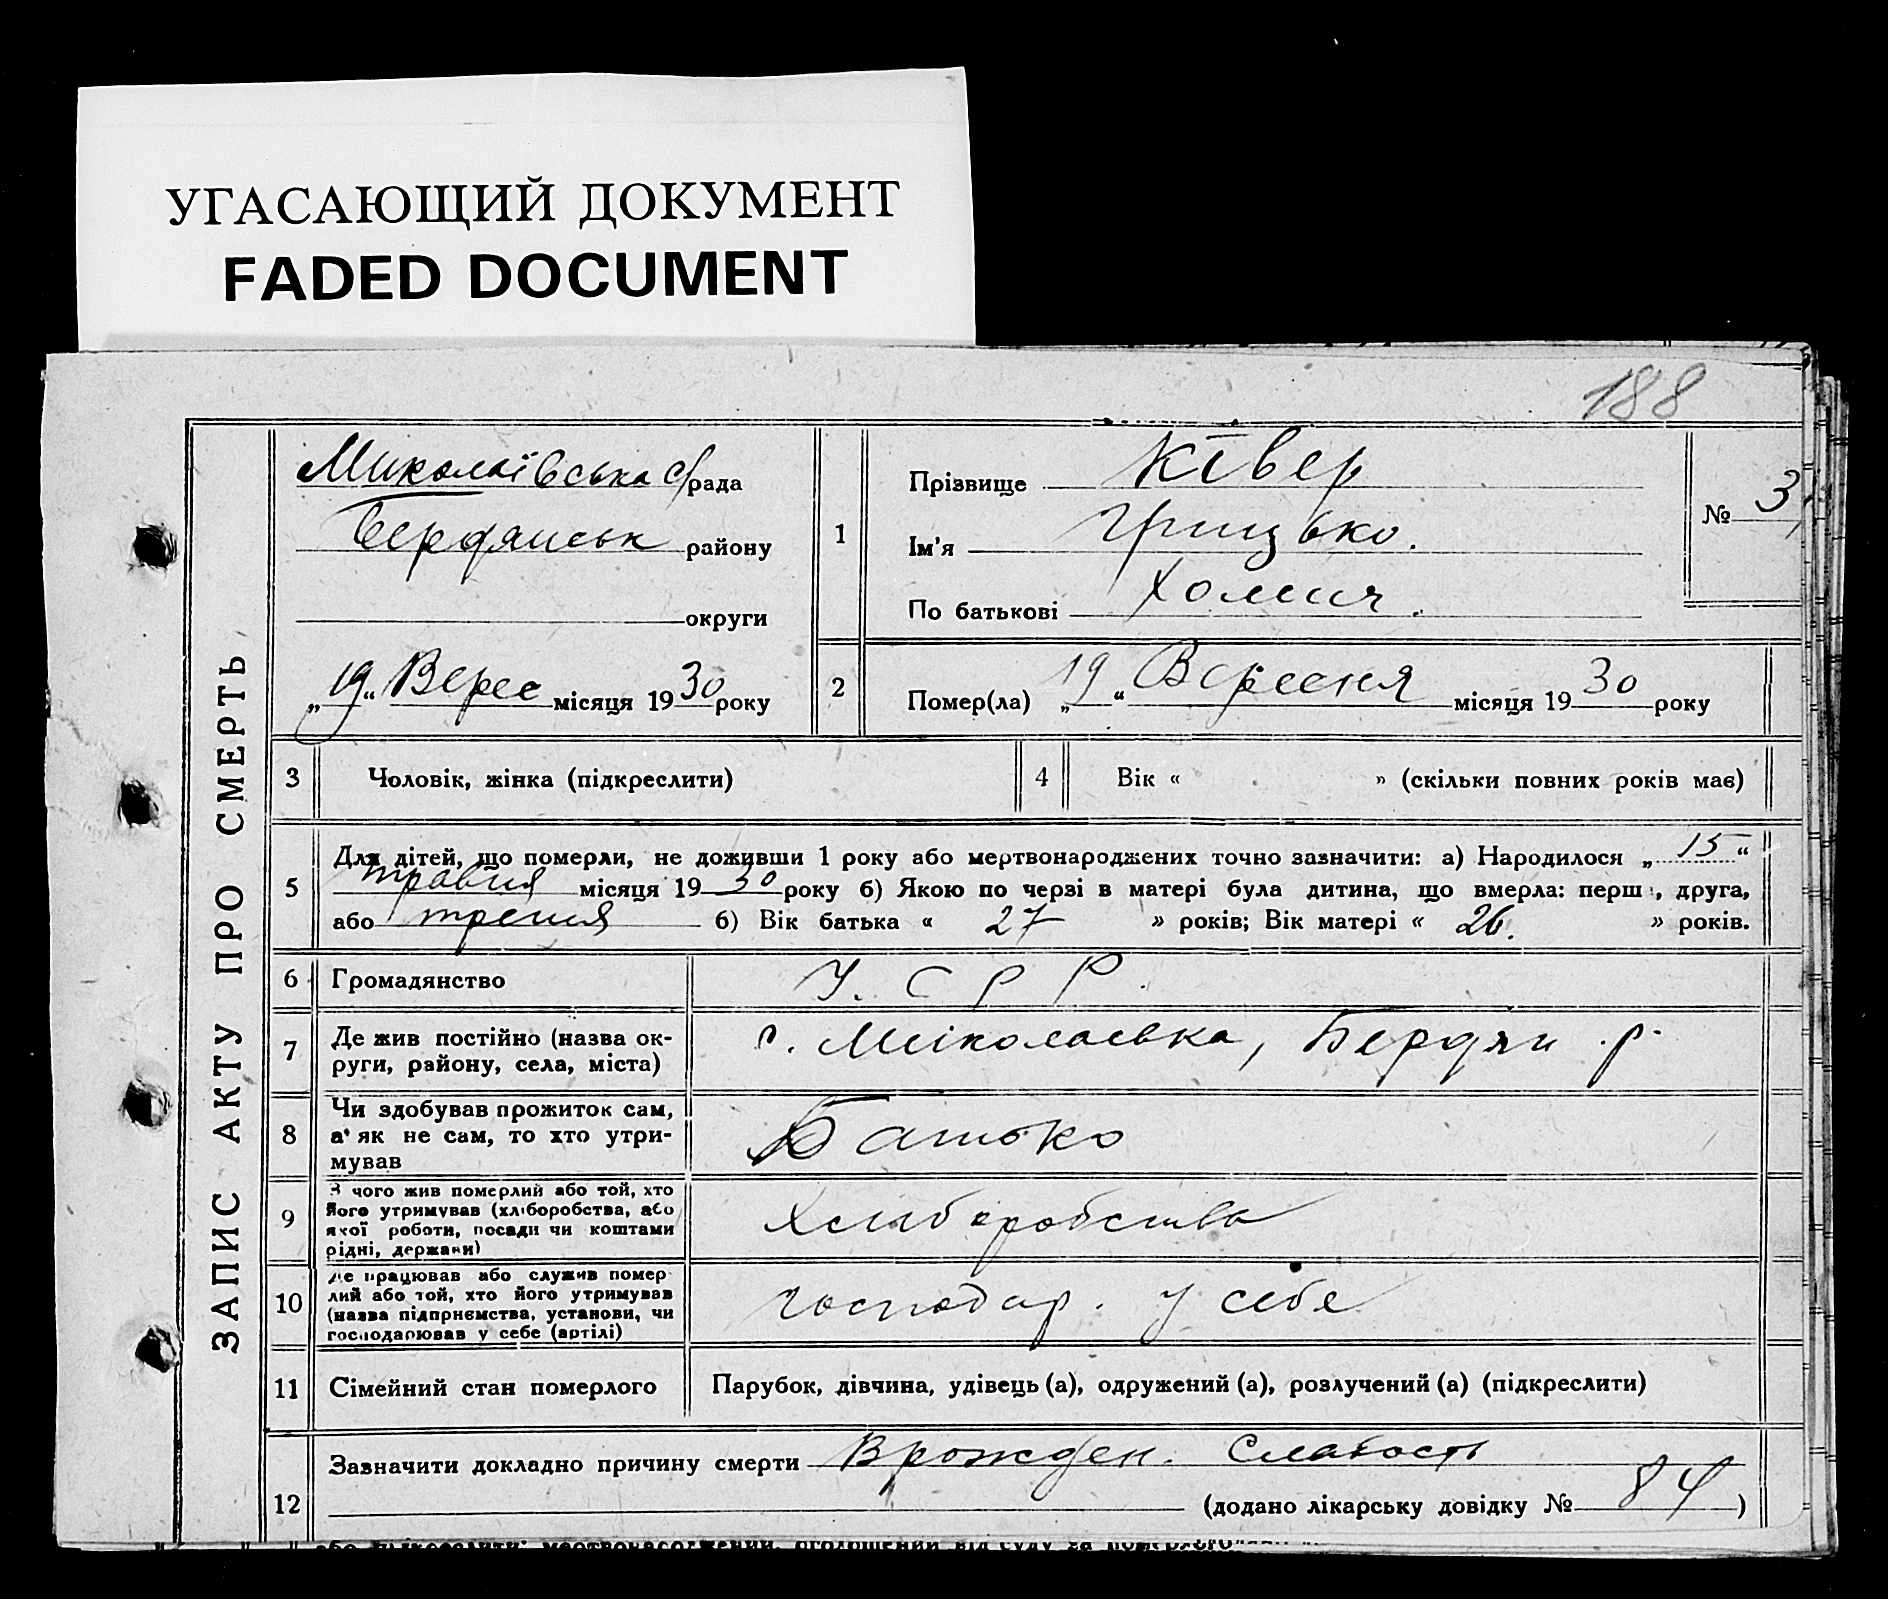 УГАСАЮЩИЙ ДОКУМЕНТ
FADED DOCUMENT
188
ЗАПИС АКТУ ПРО СМЕРТЬ
Миколаївська с/рада
Бердянськ району
округи
„19“ Верес місяця 1930 року
1
Прізвище Ківер
Ім'я Грицько.
По батькові Хомич.
№ 3
2
Помер(ла) „19“ Вересня місяця 1930 року
3 Чоловік, жінка (підкреслити)
4 Вік « » (скільки повних років має)
5
Для дітей, що померли, не доживши 1 року або мертвонароджених точно зазначити: а) Народилося „15“
травня місяця 1930 року б) Якою по черзі в матері була дитина, що вмерла: перш, друга,
або третя б) Вік батька « 27 » років; Вік матері « 26. » років.
6 Громадянство У. С Р Р.
7
Де жив постійно (назва ок-
руги, району, села, міста)
с. Миколаевка, Бердян. р.
8
Чи здобував прожиток сам,
а як не сам, то хто утри-
мував
Батько
9
З чого жив померлий або той, хто
його утримував (хліборобства, або
якої роботи, посади чи коштами
рідні, держави)
Хліборобства
10
Де працював або служив помер-
лий або той, хто його утримував
(назва підприємства, установи, чи
господарював у себе (артілі)
господар. у себе
11 Сімейний стан померлого Парубок, дівчина, удівець (а), одружений (а), розлучений (а) (підкреслити)
12
Зазначити докладно причину смерти Врожден. Слабость
(додано лікарську довідку № 84)